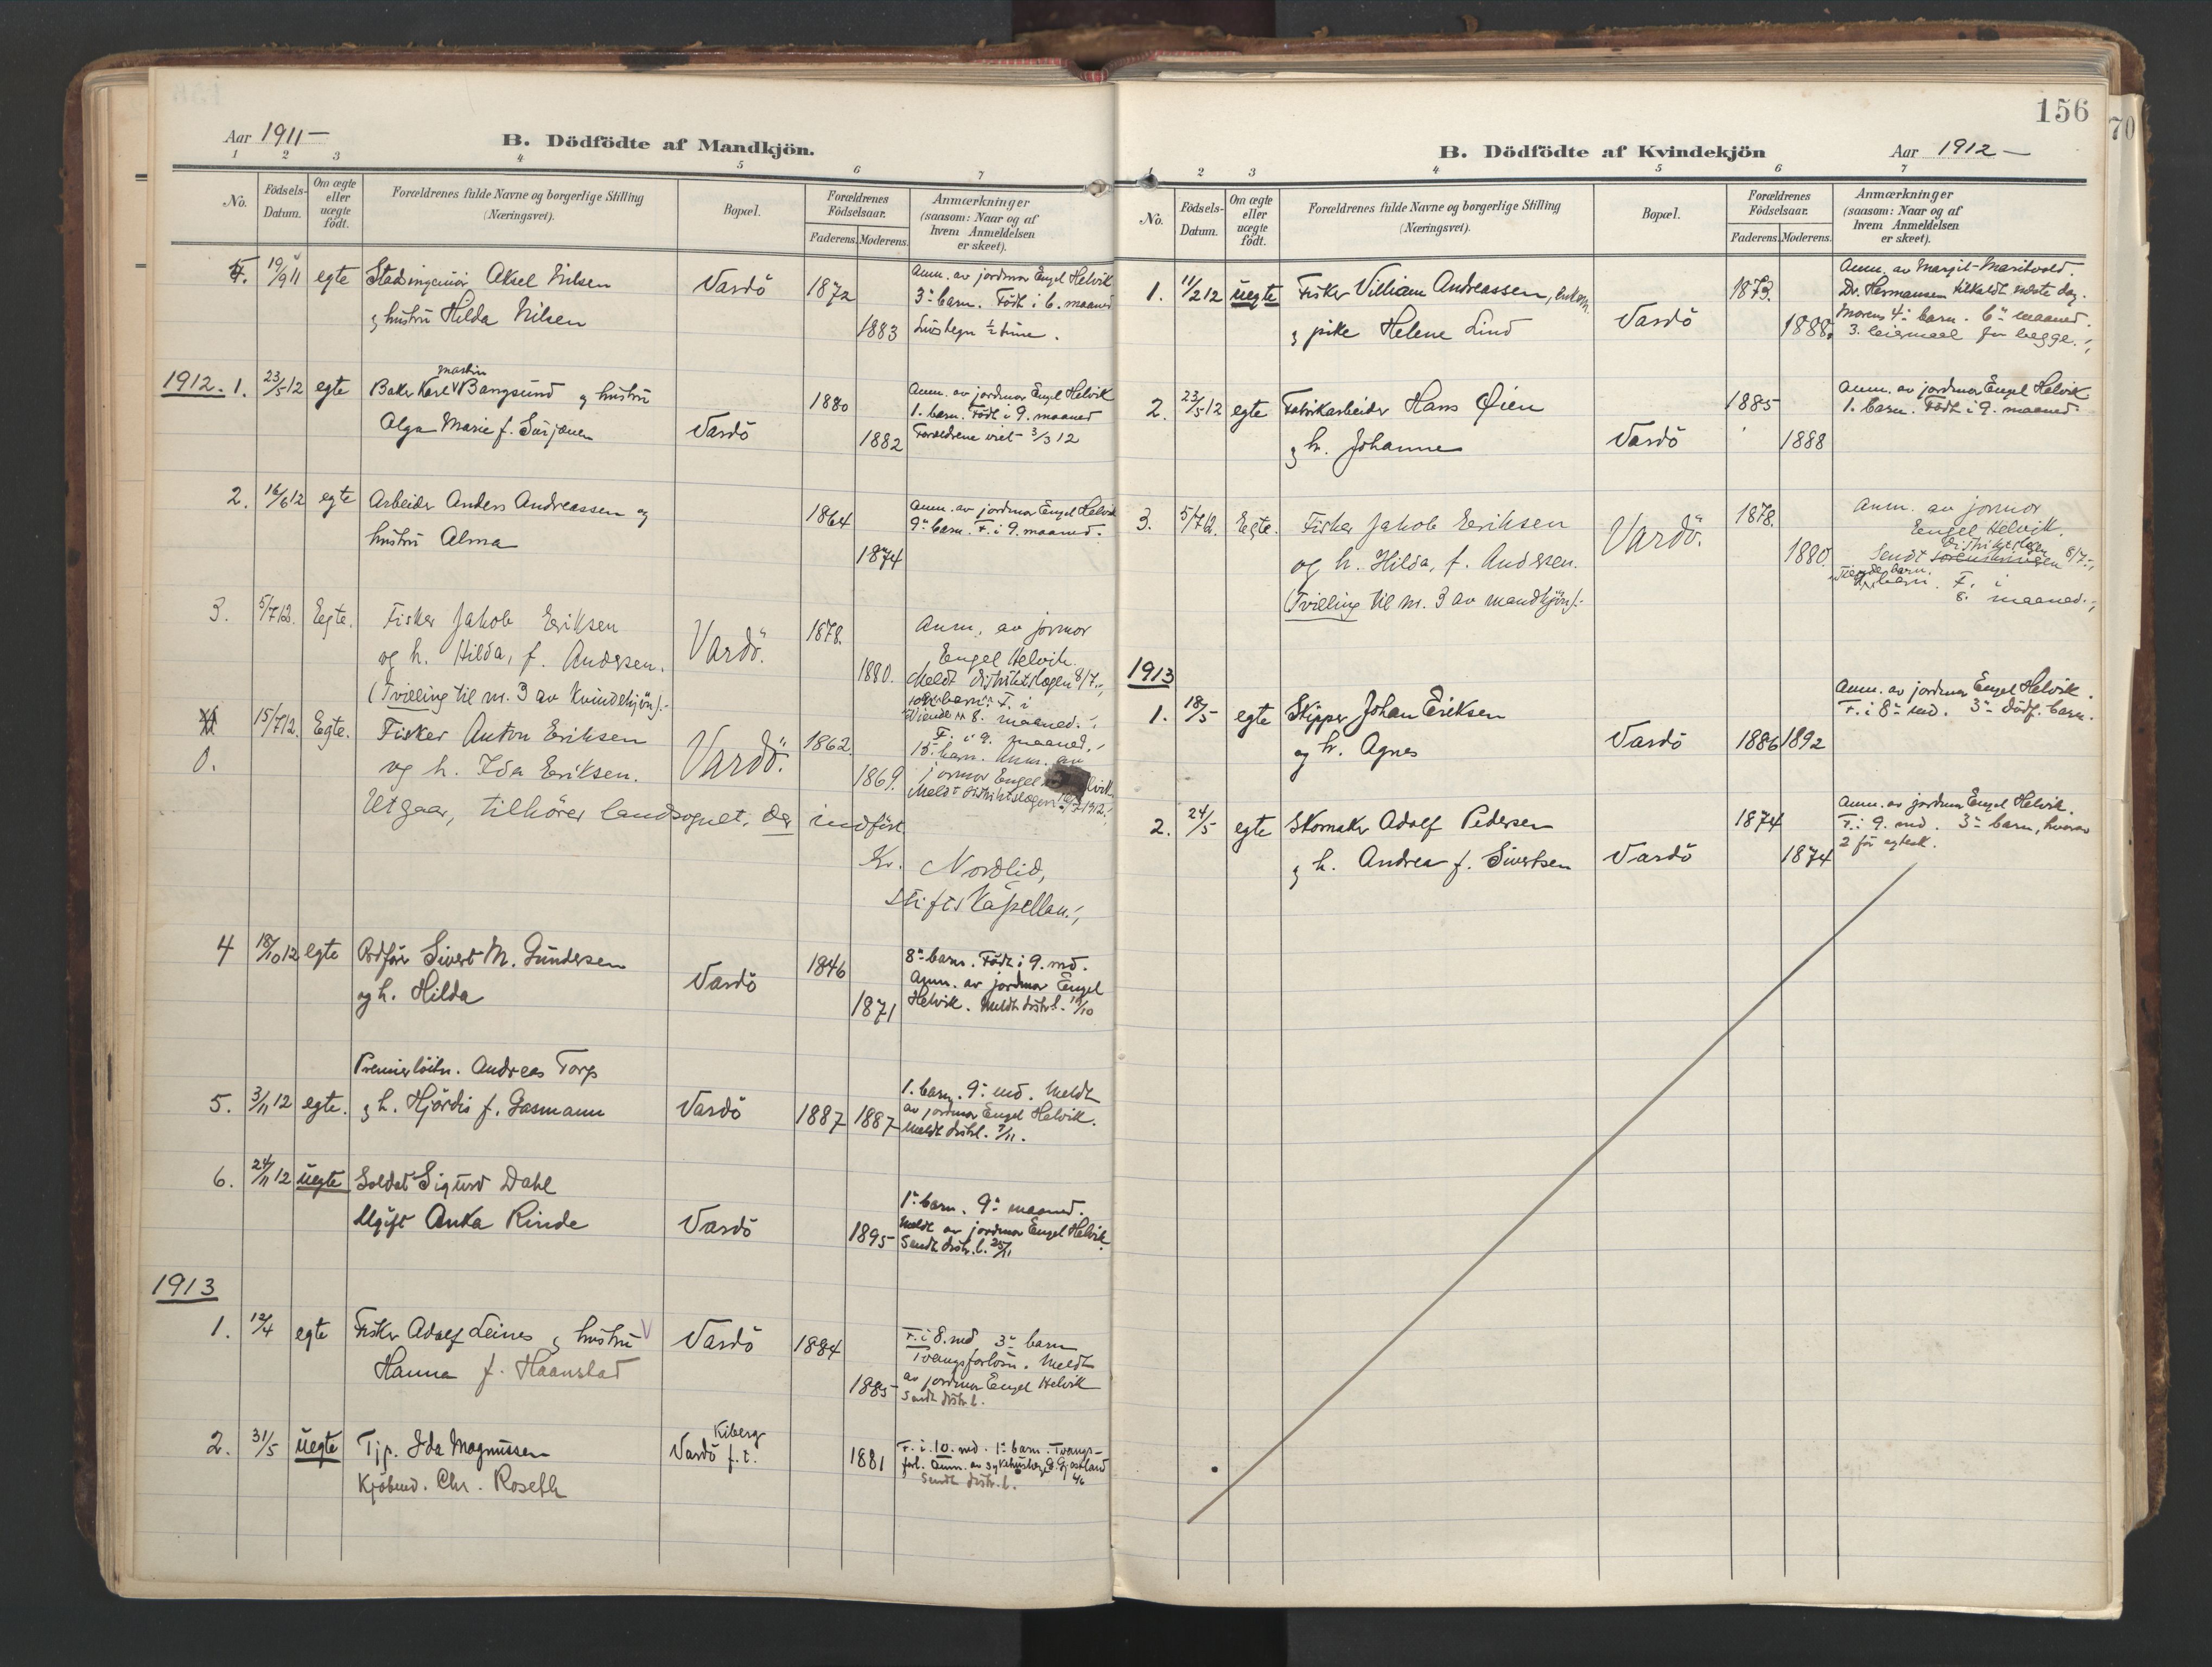 Aar 1911 –
B. Dödfödte af Mandkjön.
1 2 3 4 5 6 7
No.
Födsels-Datum.
Om ægte eller uægte födt.
Forældrenes fulde Navne og borgerlige Stilling
(Næringsvei).
Bopæl.
Forældrenes Födselsaar.
Faderens. Moderens.
Anmærkninger
(saasom: Naar og af
hvem Anmeldelsen
er skeet).
19/9 11 egte Stadsingeniör Aksel Nilsen Vardö 1872
& hustru Hilda Nilsen 1883
Anm. av jordmor Engel Helvik
3. barn. Födt i 6. maaned
Livstegn ½ time.
1912. 1. 23/5 12 egte Baker Karl Martin Bangsund & hustru 1880
Olga Marie f. Vardö 1882
Anm. av jordmor Engel Helvik
1. barn. Födt i 9. maaned
Forældrene viet 3/3 12
2. 16/6 12 egte Arbeider Anders Andreassen og 1864
hustru Alma 1874
Anm. av jordmor Engel Helvik
9. barn. F. i 9. maaned.
3. 5/7 12. Egte. Fisker Jakob Eriksen Vardö. 1878.
og h. Hilda, f. Andersen. 1880.
(Tvilling til nr. 3 av Kvindekjön).
Anm. av jormor
Engel Helvik.
Meldt distriktslægen 8/7.
Tiende 8. maaned.
0. 15/7 12. Egte. Fisker Anton Eriksen Vardö. 1862.
og h. Ida Eriksen. 1869.
F. i 9. maaned.
15. barn. Anm. av
jormor Engel Helvik.
Meldt distriktslægen
Utgaar, tilhörer landsognet, der indfört
Kr. Nordlid,
Stiftskapellan.
4 18/10 12 egte Ordförer Sivert M. Gundersen Vardö 1846
og h. Hilda 1871
8. barn. Födt i 9. md.
Anm. av jordmor Engel
Helvik. Meldt distr.l. 19/10
Premierlöitn. Andreas Torp
5. 3/11 12 egte. & h. Hjördis f. Gasmann Vardö 1887 1887
1. barn. 9. md. Meldt
av jordmor Engel Helvik.
Meldt distr.l. 7/11.
6. 24/11 12 uegte Soldat Sigurd Dahl
Ugift Anka Rinde Vardö 1895
1. barn. 9. maaned.
Meldt av jordmor Engel Helvik.
Sendt distr.l. 25/11
1913
1. 12/4 egte Fisker Adolf Leines & hustru Vardö 1884
Hanna f. Haanstad 1885
F. i 8. md 3. barn
Tvangsforlösn. Meldt
av jordmor Engel Helvik
Sendt distr.l.
2. 31/5 uegte Tjp. Ida Magnussen Kiberg
Vardö f.t. 1881
Kjöbmd. Chr. Roseth
F. i 10. md. 1. barn. Tvangs-
forl. Anm. av
Sendt distr.l.
156
70
B. Dödfödte af Kvindekjön
Aar 1912 –
1 2 3 4 5 6 7
No.
Födsels-Datum.
Om ægte eller uægte födt.
Forældrenes fulde Navne og borgerlige Stilling
(Næringsvei).
Bopæl.
Forældrenes Födselsaar.
Faderens. Moderens.
Anmærkninger
(saasom: Naar og af
hvem Anmeldelsen
er skeet).
1. 11/2 12 uegte Fisker Villiam Andreassen, enkem. 1873.
& pike Helene Lind Vardö 1888.
Anm. av Margit Maritvold.
Dr. Hermansen tilkaldt næste dag.
Morens 4. barn. 6. maaned.
3. leiermaal for begge.
2. 23/5 12 egte Fabrikarbeider Hans Øien 1885
& h. Johanne Vardö 1888
Anm. av jordmor Engel Helvik
1. barn. Födt i 9. maaned.
3. 5/7 12. Egte. Fisker Jakob Eriksen Vardö. 1878.
og h. Hilda, f. Andersen. 1880.
(Tvilling til nr. 3 av mandkjön).
Anm. av jormor
Engel Helvik.
Sendt distriktslægen 8/7.
Tiende barn. F. i
8. maaned.
1913
1. 18/5 egte Skipper Johan Eriksen
og h. Agnes Vardö 1886 1892
Anm. av jordmor Engel Helvik.
F. i 8. md. 3. dödf. barn.
2. 24/5 egte Skomaker Adolf Pedersen 1874
& h. Andrea f. Sivertsen Vardö 1874
Anm. av jordmor Engel Helvik.
F. i 9. md. 3. barn, hvorav
2 för egtesk.